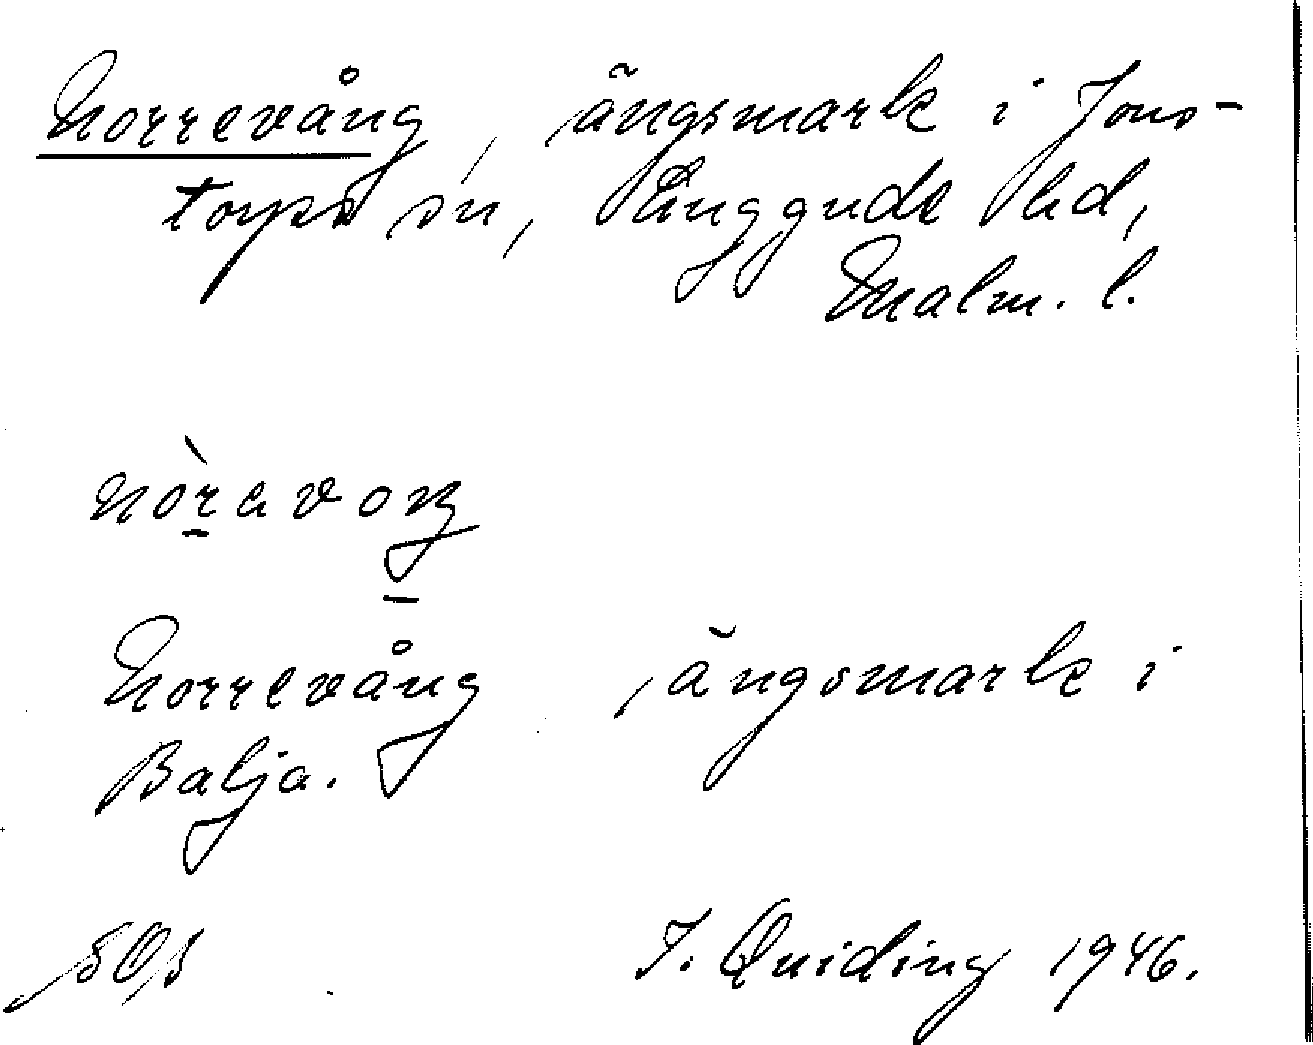 Norrevång, ängsmark i Jons-
torps sn, Luggude hd,
Malm. l.
nòravoŋ
Norrevång, ängsmark i
Balja.
I. Quiding 1946.